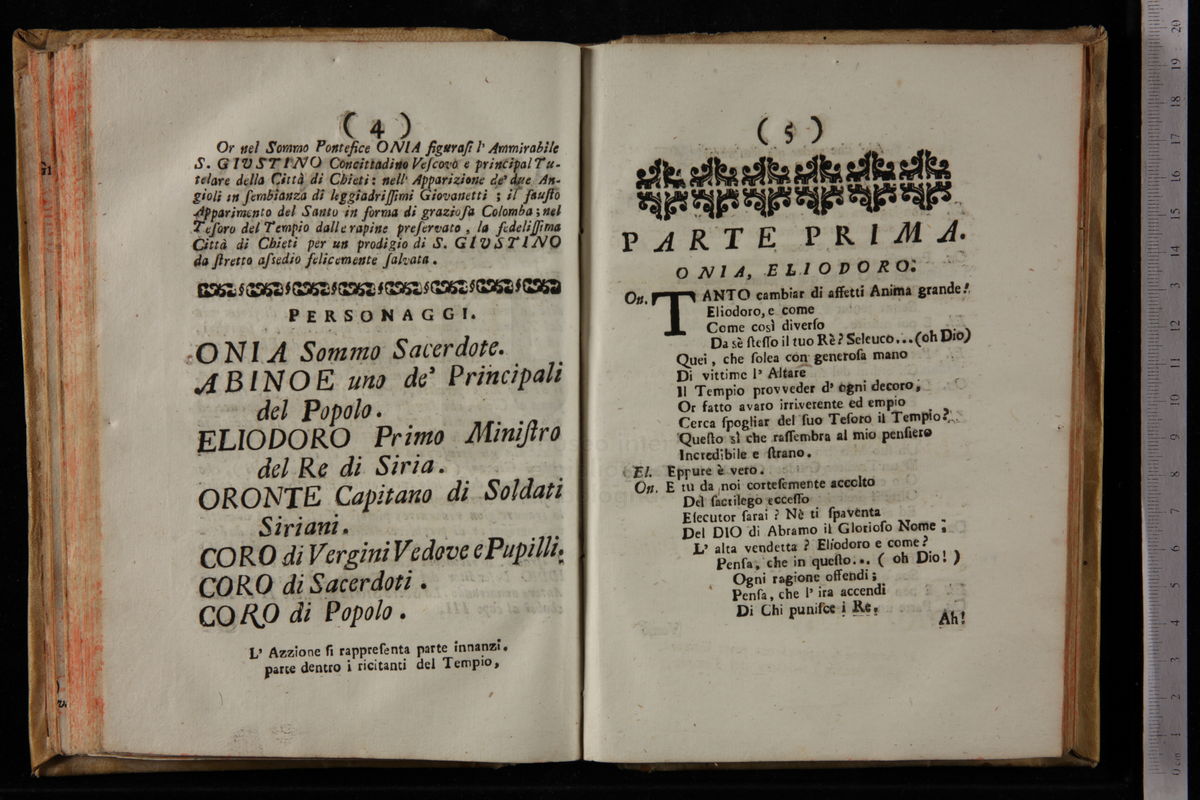 ( 4 )
Or nel Sommo Pontefice ONIA figuraſi l' Ammirabile
S. GIUSTINO Concittadino Veſcovo e principal Tu-
telare della Città di Chieti: nell' Apparizione de' due An-
gioli in ſembianza di leggiadriſſimi Giovanetti ; il fauſto
Apparimento del Santo in forma di grazioſa Colomba ; nel
Teſoro del Tempio dalle rapine preſervato , la fedeliſſima
Città di Chieti per un prodigio di S. GIUSTINO
da ſtretto aſsedio felicemente ſalvata .
PERSONAGGI.
ONIA Sommo Sacerdote.
ABINOE uno de' Principali
del Popolo .
ELIODORO Primo Miniſtro
del Re di Siria .
ORONTE Capitano di Soldati
Siriani .
CORO di Vergini Vedove e Pupilli.
CORO di Sacerdoti .
CORO di Popolo .
L' Azzione ſi rappreſenta parte innanzi.
parte dentro i ricitanti del Tempio,
( 5 )
PARTE PRIMA.
ONIA, ELIODORO.
On. TANTO cambiar di affetti Anima grande!
Eliodoro, e come
Come così diverſo
Da sè ſteſſo il tuo Rè? Seleuco... (oh Dio)
Quei , che ſolea con generoſa mano
Di vittime l' Altare
Il Tempio provveder d' ogni decoro,
Or fatto avaro irriverente ed empio
Cerca ſpogliar del ſuo Teſoro il Tempio?
Queſto sì che raſſembra al mio penſiero
Incredibile e ſtrano.
El. Eppure è vero.
On. E tu da noi corteſemente accolto
Del ſacrilego ecceſſo
Eſecutor ſarai ? Nè ti ſpaventa
Del DIO di Abramo il Glorioſo Nome ;
L' alta vendetta ? Eliodoro e come?
Penſa, che in queſto... ( oh Dio! )
Ogni ragione offendi ;
Penſa, che l' ira accendi
Di Chi puniſce i Re.
Ah!
0 cm 1 2 3 4 5 6 7 8 9 10 11 12 13 14 15 16 17 18 19 20